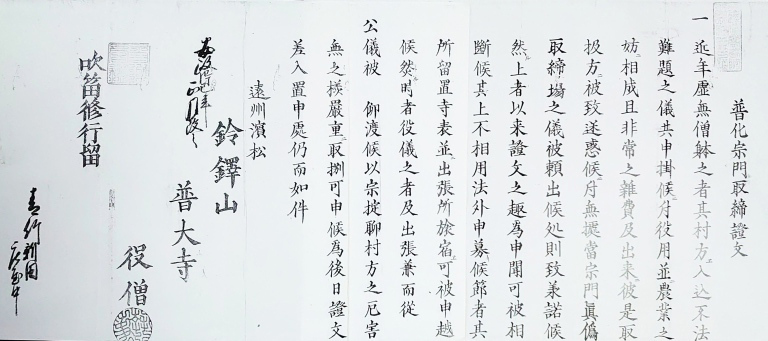 普化宗門取締證文
一 近年虚無僧躰之者其村方入込不法
難題之儀共申掛候ニ付役用並農業之
妨相成且非常之雑費及出来彼是取
扱方被致迷惑候ニ付無據當宗門眞偽
取締場之儀被頼出候処則致兼諾候
然上者以来證文之趣為申聞可被相
断候其上不相用法外申募候節者其
所留置寺表並出張所旅宿可被申越
候然時者役儀之者及出張兼而従
公儀被 仰渡候以宗掟聊村方之厄害
無之様嚴重取捌可申候為後日證文
差入置申處仍而如件
遠州濱松
鈴鐸山
普大寺
役僧
吹笛修行留